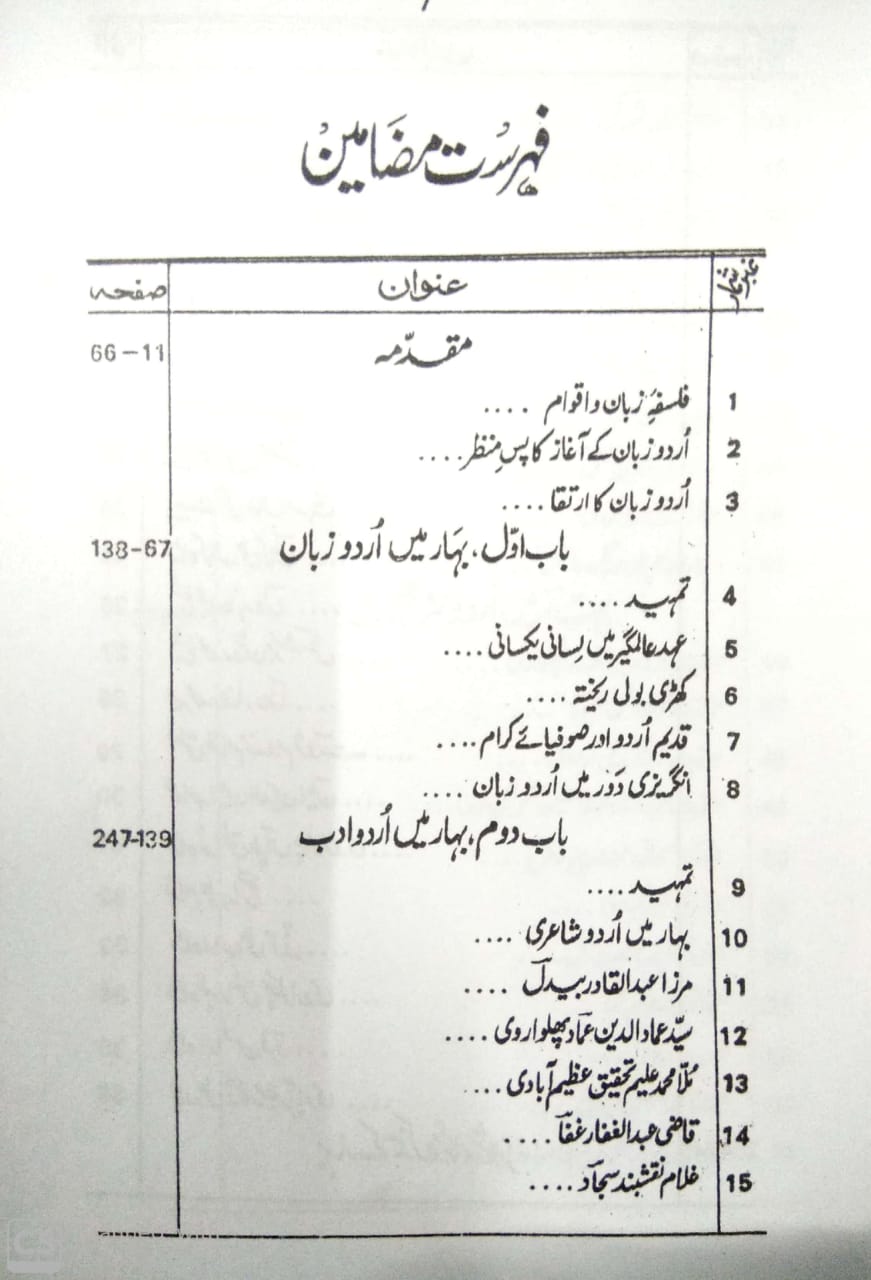 فہرست مضامین
نمبر شمار عنوان صفحہ
مقدّمہ 11-66
1 فلسفۂ زبان و اقوام ....
2 اُردو زبان کے آغاز کا پسِ منظر ....
3 اُردو زبان کا ارتقا ....
باب اوّل، بہَار میں اُردو زبان 67-138
4 تمہید ....
5 عہد عالمگیر میں لِسانی یکسانی ....
6 کھڑی بولی ریختہ ....
7 قدیم اُردو اور صوفیائے کرام ....
8 انگریزی دَور میں اُردو زبان ....
باب دوم، بہار میں اُردو ادب 139-247
9 تمہید ....
10 بہار میں اُردو شاعری ....
11 مرزا عبدالقادر بیدلؔ ....
12 سیّد عماد الدین عمادؔ پھلواروی ....
13 مُلّا محمد علیم تحقیق عظیم آبادی ...
14 قاضی عبدالغفار غفاؔ ....
15 غلام نقشبند سجادؔ ....